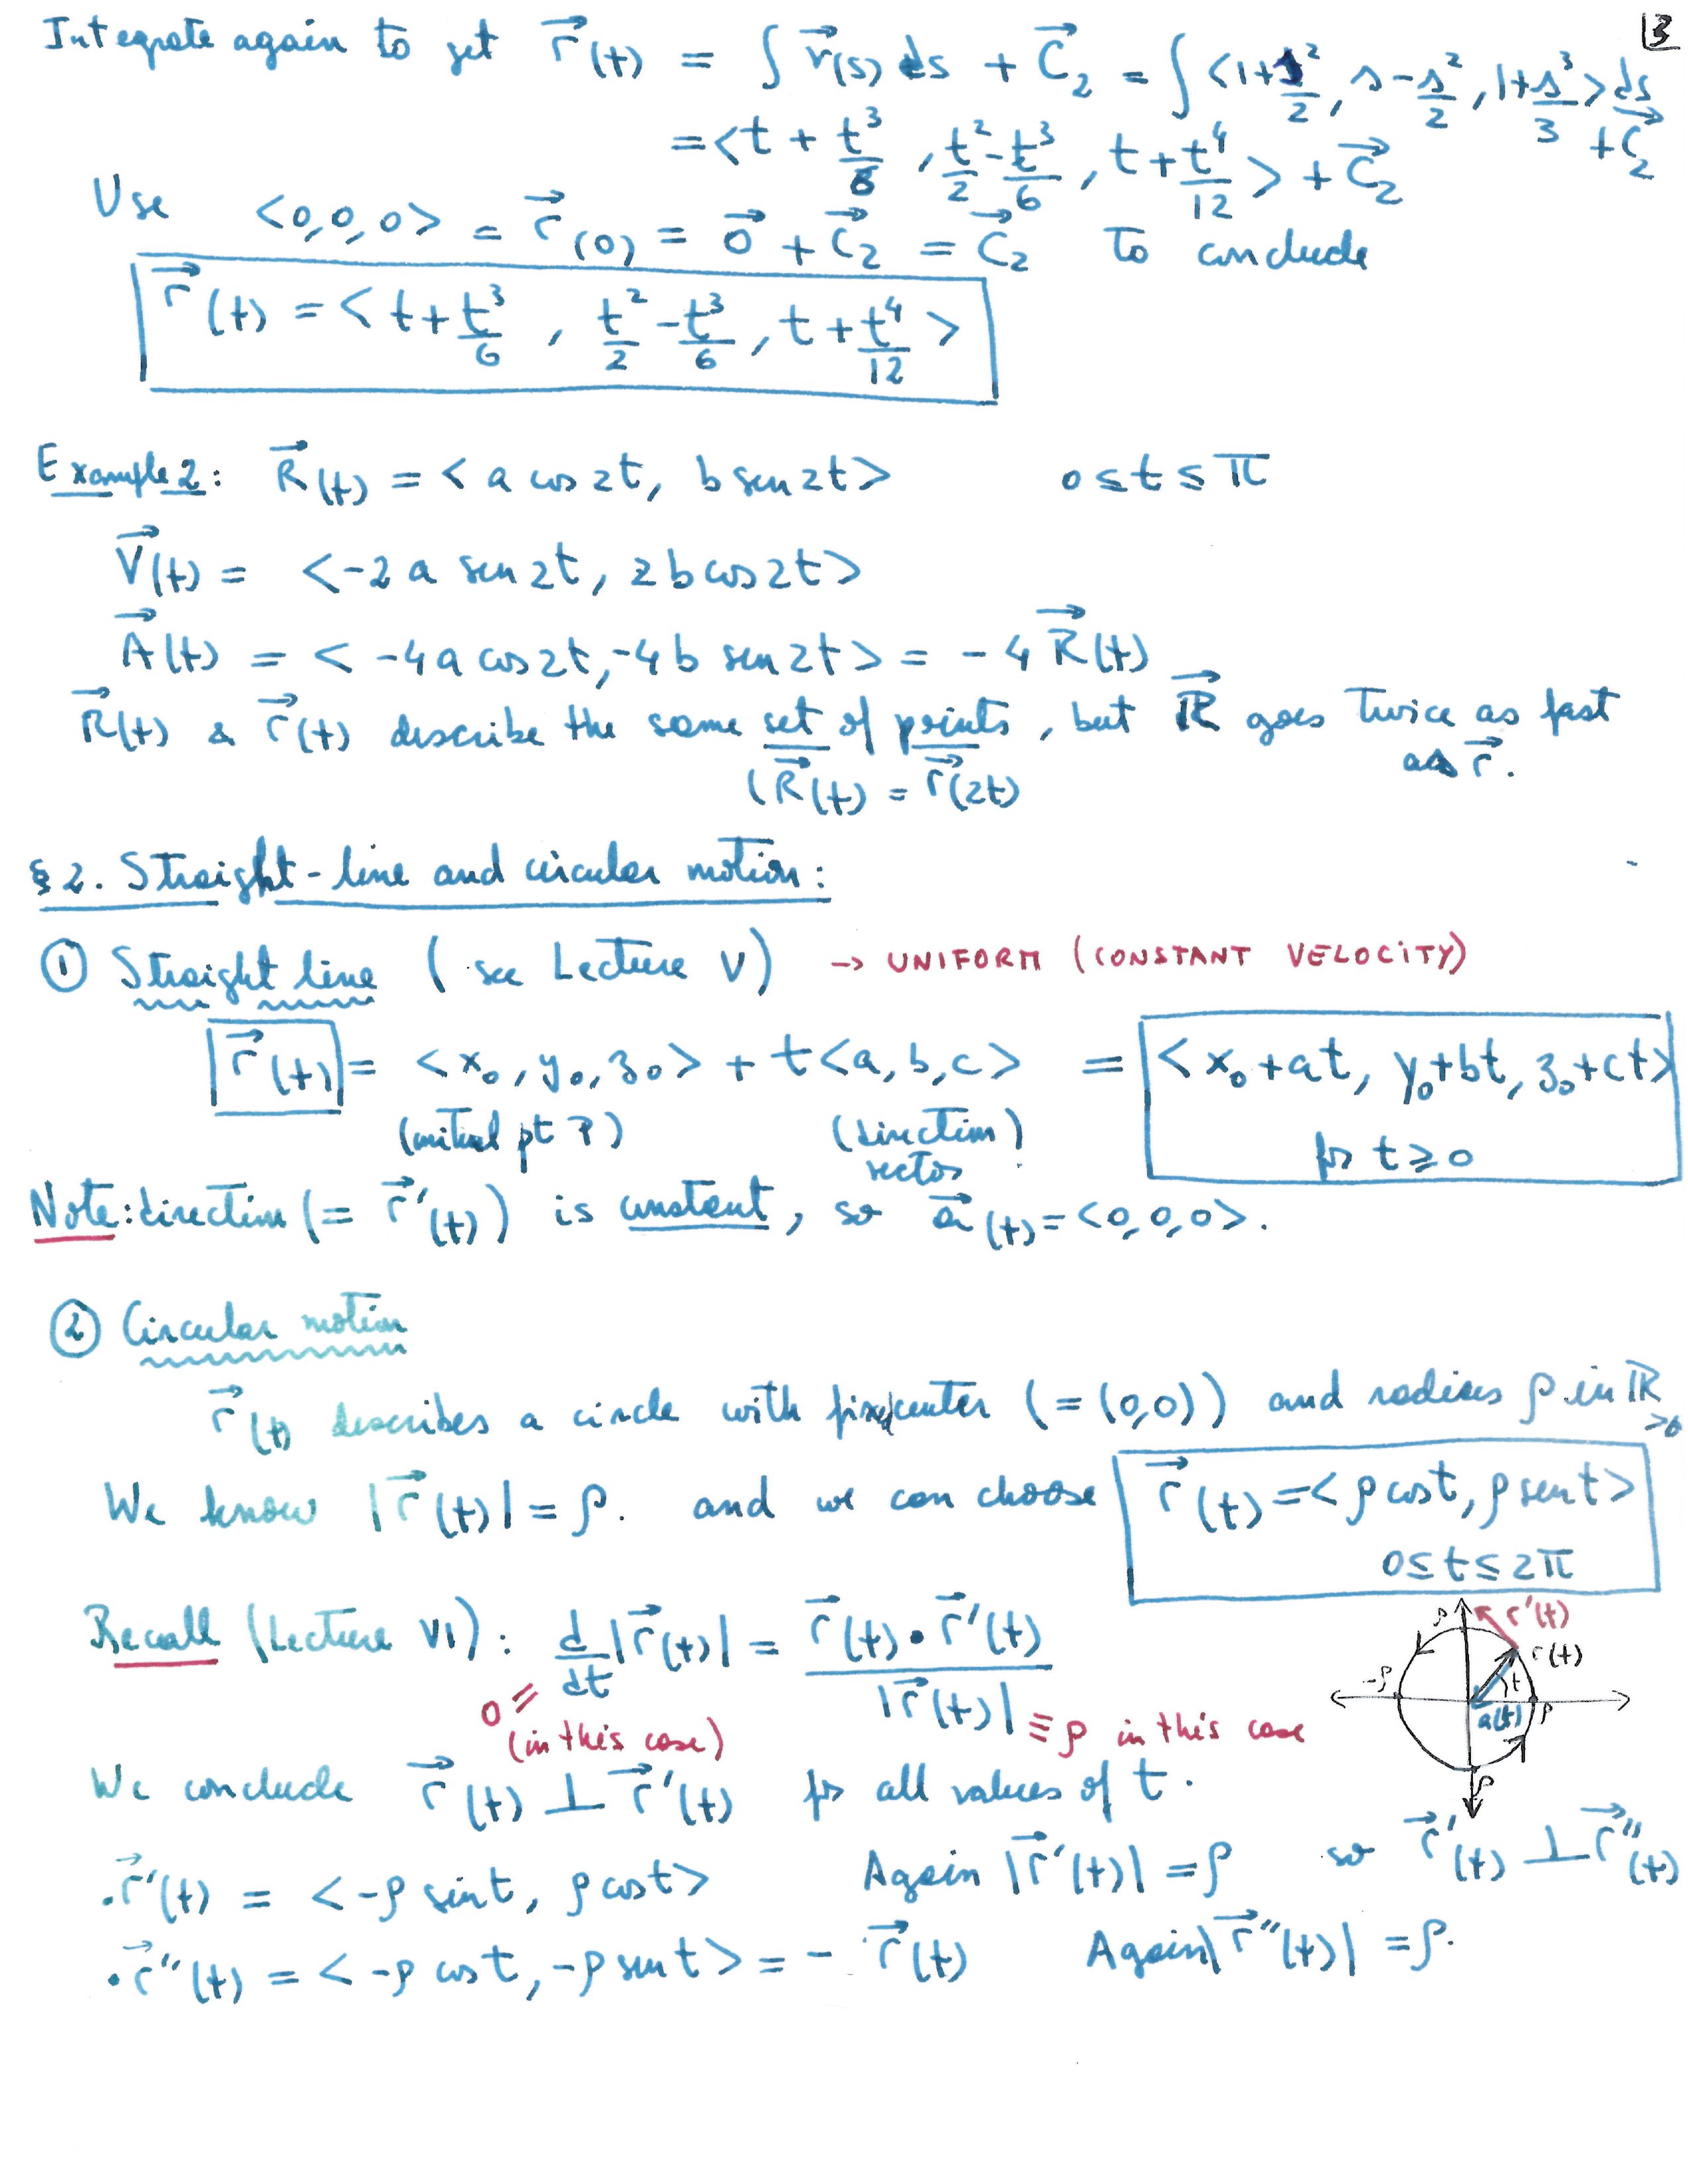 3
Integrate again to get r⃗(t) = ∫ v⃗(s) ds + C⃗₂ = ∫ <1+s²/2, s-s²/2, 1+s³/3> ds + C⃗₂
= <t + t³/6, t²/2 - t³/6, t + t⁴/12> + C⃗₂
Use <0,0,0> = r⃗(0) = 0⃗ + C⃗₂ = C⃗₂ to conclude
r⃗(t) = < t + t³/6, t²/2 - t³/6, t + t⁴/12 >
Example 2: R⃗(t) = < a cos 2t, b sen 2t> 0 ≤ t ≤ π
V⃗(t) = <-2 a sen 2t, 2 b cos 2t>
A⃗(t) = < -4 a cos 2t, -4 b sen 2t> = - 4 R⃗(t)
R⃗(t) & r⃗(t) describe the same set of points, but R⃗ goes twice as fast
as r⃗.
(R⃗(t) = r⃗(2t)
§2. Straight-line and circular motion:
① Straight line (see Lecture V) → UNIFORM (CONSTANT VELOCITY)
r⃗(t) = <x₀, y₀, z₀> + t<a, b, c> = <x₀+at, y₀+bt, z₀+ct>
(initial pt P) (direction) vector for t ≥ 0
Note: direction (= r⃗'(t)) is constant, so a⃗(t) = <0,0,0>.
② Circular motion
r⃗(t) describes a circle with fix center (=(0,0)) and radius ρ in ℝ>0
We know |r⃗(t)| = ρ. and we can choose r⃗(t) = <ρ cos t, ρ sen t>
0 ≤ t ≤ 2π
Recall (Lecture VI): d/dt |r⃗(t)| = r⃗(t) • r⃗'(t) / |r⃗(t)|
0 = (in this case) ≡ ρ in this case
ρ r'(t)
r(t)
-ρ t
a(t) ρ
ρ
We conclude r⃗(t) ⊥ r⃗'(t) for all values of t.
• r⃗'(t) = <-ρ sin t, ρ cos t> Again |r⃗'(t)| = ρ so r⃗'(t) ⊥ r⃗''(t)
• r⃗''(t) = < -ρ cos t, -ρ sen t> = - r⃗(t) Again |r⃗''(t)| = ρ.